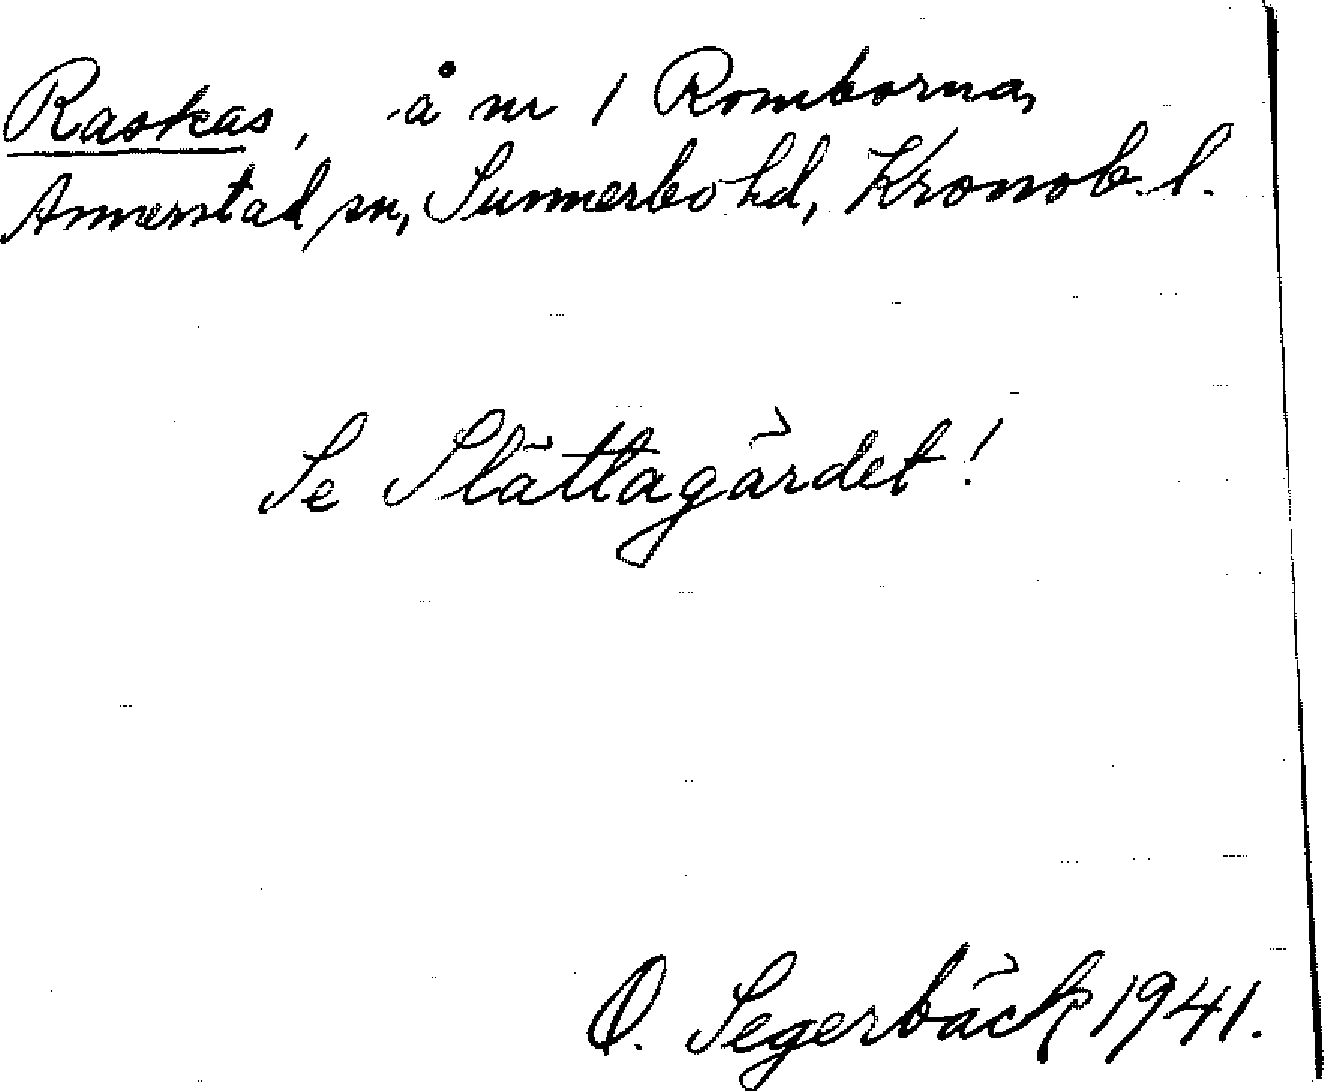 Raskas, å nr 1 Romborna,
Annerstad sn, Sunnerbo hd, Kronob. l.
Se Slättagärdet!
O. Segerbäck 1941.